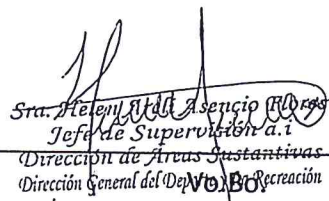 Sra. Helen Asencio Flores
Jefe de Supervisión a.i
Dirección de Áreas Sustantivas
Dirección General del Deporte y la Recreación
Vo.Bo.